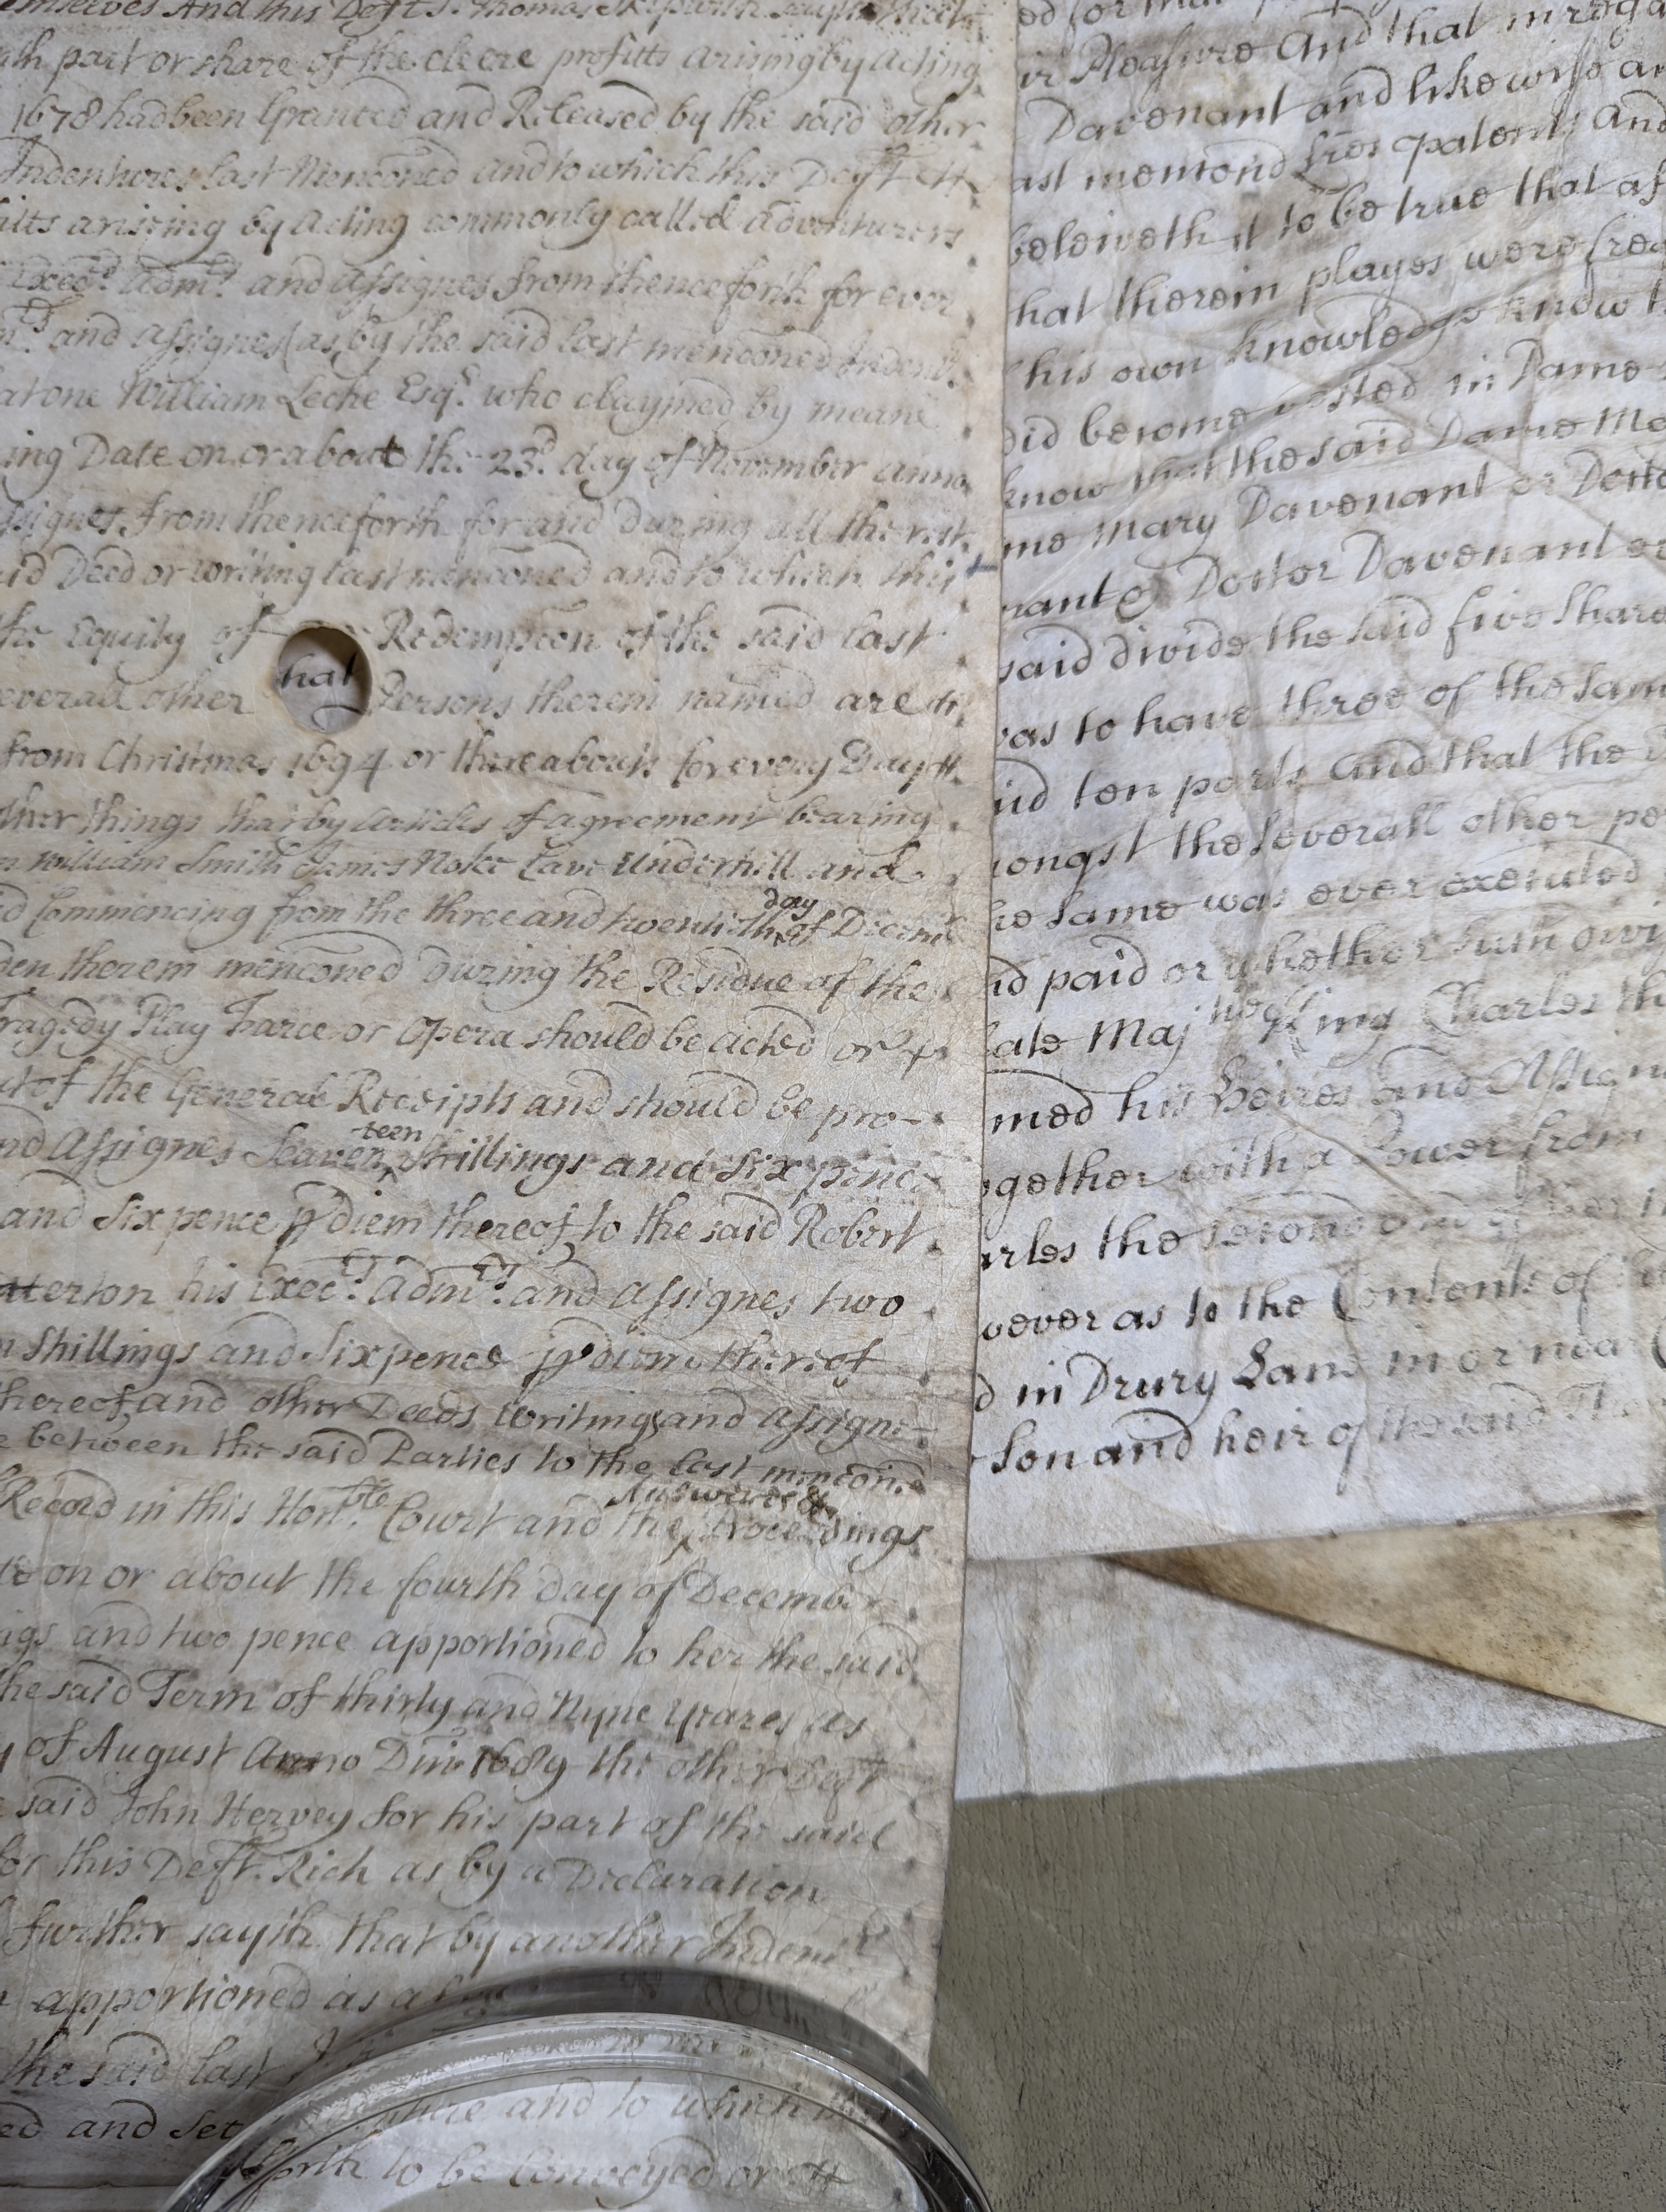 emselves And this Deft Sr. Thomas Skipwith sayth that
th part or share of the cleere profitts arising by acting
1678 had been Granted and Released by the said other
Indentures last Menconed and to which this Deft
fitts arising by Acting commonly called Adventurers
Execrs. Admrs. and Assignes from thenceforth for ever
and Assignes (as by the said last menconed Indent.
at one William Leche Esqr. who claymed by meane
ing Date on or about the 23d. day of November anno
ssignes from thenceforth for and During all the rest
id Deed or writing last menconed and to which this
the Equity of Redempcon of the said last
hat
everall other Persons therein named are
from Christmas 1694 or thereabouts for every Day
ther things that by Articles of agreement bearing
William Smith James Noke Cave Underhill and
day
d Commencing from the three and twentieth of Decem
den therein menconed During the Residue of the
Tragedy Play Farce or Opera should be acted or
ut of the General Receipts and should be pro-
teen
nd Assignes Seaven Shillings and six pence
and six pence p diem thereof to the said Robert
atterton his Execrs. Admrs. and Assignes two
n Shillings and Six pence p diem thereof
thereof, and other Deeds, writings and Assigne-
e between the said Parties to the last menconed
Answeres &
Record in this Honble. Court and the proceedings
te on or about the fourth day of December
ngs and two pence apportioned to her the said
the said Term of thirty and Nyne Yeares as
y of August Anno Dni 1689 the other Deft
said John Hervey for his part of the said
for this Deft. Rich as by a Declaration
further sayth that by another Indent
apportioned as a
the said last
ed and set
and to which
forth to be Conveyed or
ed for that
ir Pleasure And that
Davenant and likewise an
ast mentond Lres patents and
beleiveth it to be true that af
hat therein playes were freq
his own knowledge know
did become vested in Dame
know that the said Dame Ma
me Mary Davenant or Docto
nant & Doctor Davenant or
said divide the said five Share
as to have three of the Sam
id ten parts and that the
mongst the severall other pe
he same was ever executed
id paid or whether such
late Maj King Charles th
med his Heires and Assigne
ogether with a Power from
arles the second and
wever as to the Contents of
d in Drury Lane in or near
Son and heir of the said